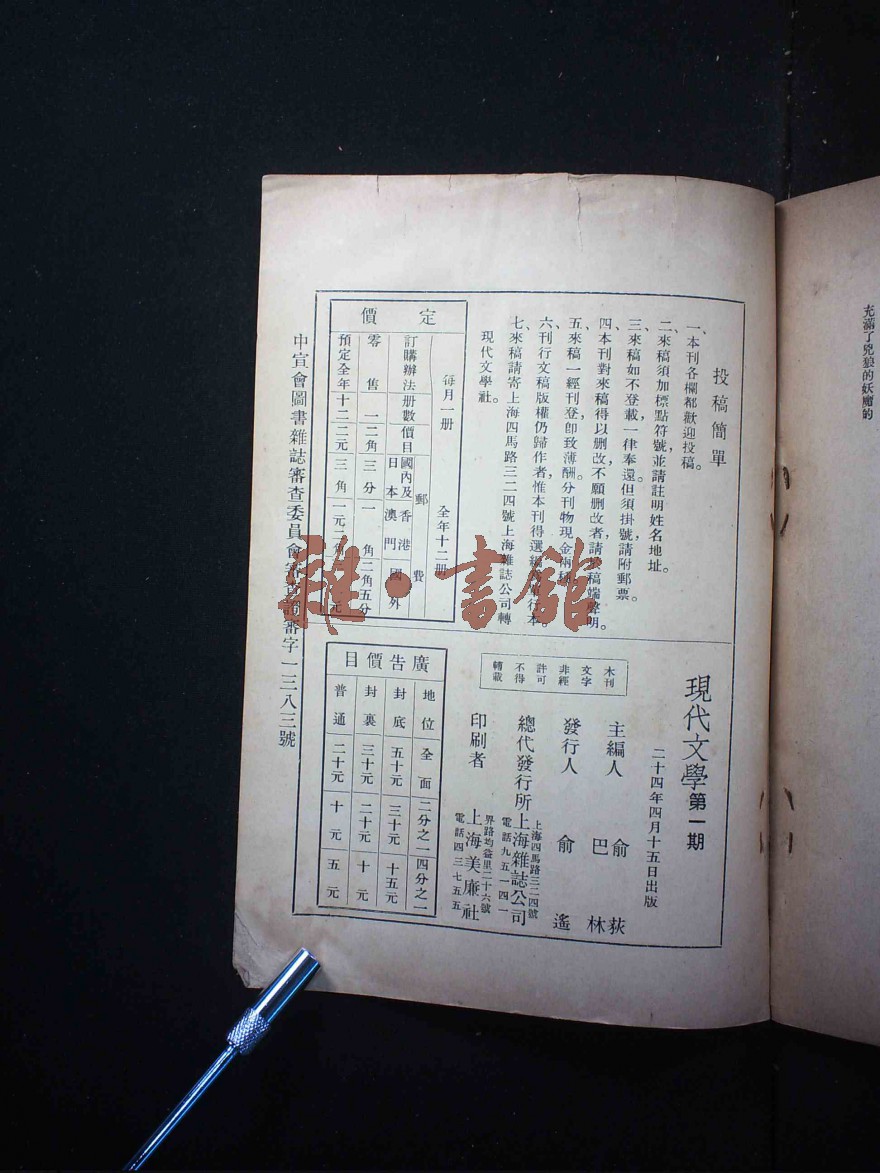 充滿了兇狼的妖魔的
投稿簡單
一、本刊各欄都歡迎投稿。
二、來稿須加標點符號，並請註明姓名地址。
三、來稿如不登載，一律奉還。但須掛號，請附郵票。
四、本刊對來稿得以刪改，不願刪改者請於稿端聲明。
五、來稿一經刊登，卽致薄酬。分刊物現金兩
六、刊行文稿版權仍歸作者，惟本刊得選編單行本。
七、來稿請寄上海四馬路三二四號上海雜誌公司轉
現代文學社。
定價
每月一册　全年十二册
訂購辦法 册數 價目 郵費
國內及日本 香港澳門 國外
零售 一 二角 三分 一角 二角五分
預定全年 十二 二元 三角
現代文學第一期
二十四年四月十五日出版
主編人 俞荻
巴林
發行人 俞遙
總代發行所 上海雜誌公司
上海四馬路三二四號
電話九五一四一
印刷者 上海美廉社
界路均益里二十六號
電話四三七五五
木刊文字非經許可不得轉載
廣告價目
地位 全面 二分之一 四分之一
封底 五十元 三十元 十五元
封裏 三十元 二十元 十元
普通 二十元 十元 五元
中宣會圖書雜誌審查委員會審查證審字一三八三號
雜·書館